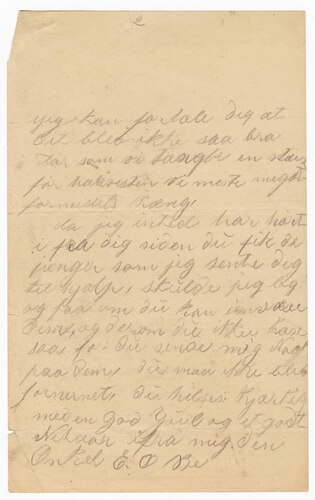 2
jeg kan fortale dig at
det blev ikke saa bra
Aar som vi tængte en stun
før harvestin vi meste meget
formedelst
da jeg inted har hørt
i fra dig siden du fik de
penger som jeg sente dig
til hjælp, skulde jeg
og faa om du kan
dem, og der som du ikke har
saa for du sende mig Noat
paa dem, du maa ikke blive
fornermet, du hilses Kjærlig
med en god Yul og et godt
Nytaar ifra mig. Din
Onkel E. O Be